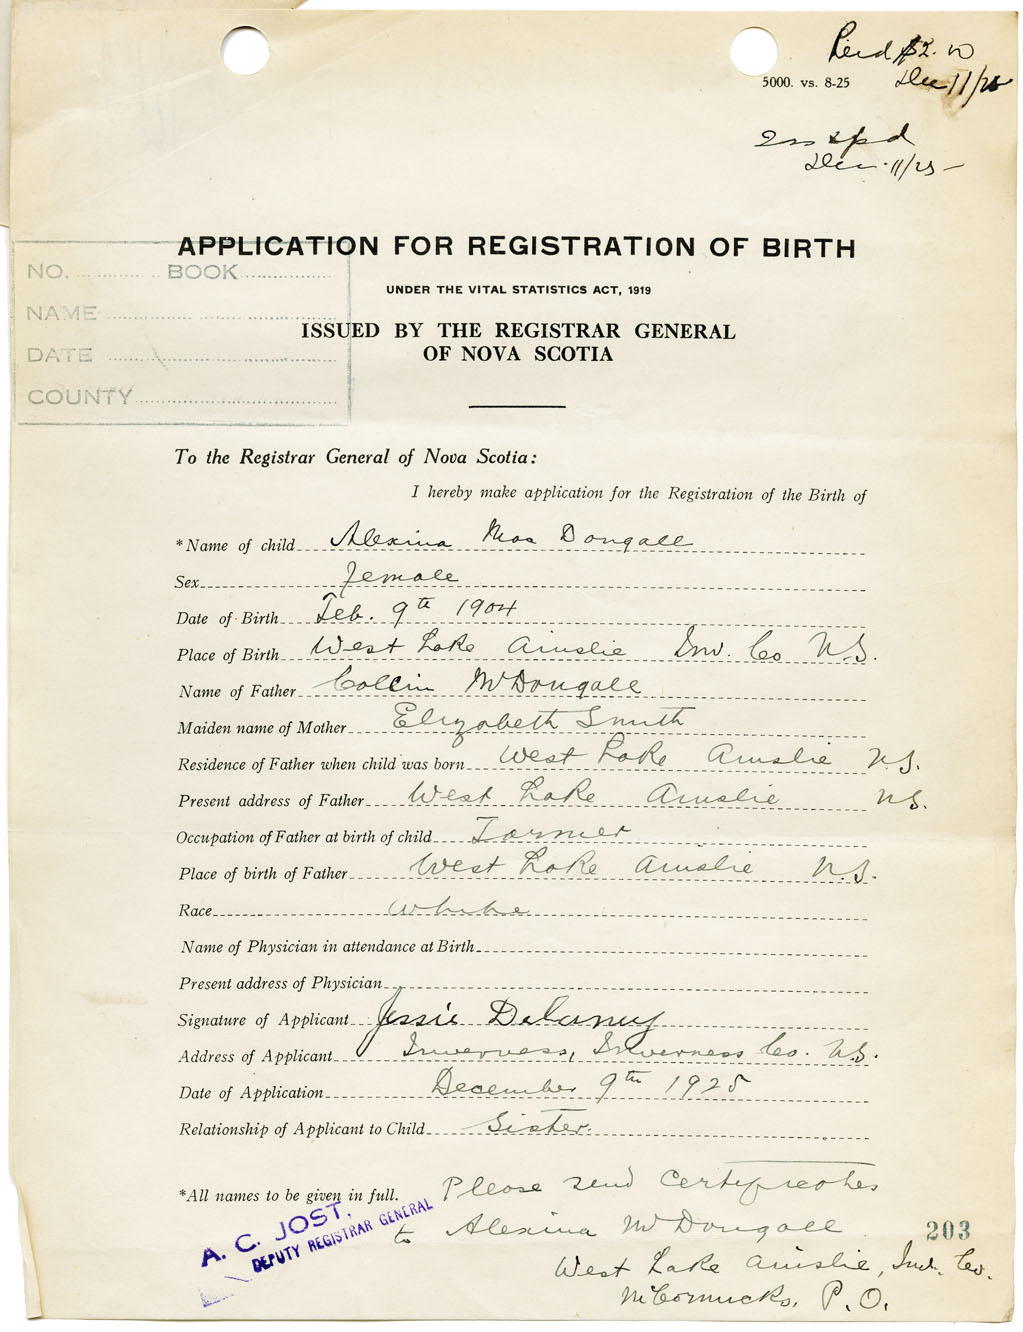 Recd $2.00
5000. vs. 8-25
Dec 11/25
Dec. 11/25 —
APPLICATION FOR REGISTRATION OF BIRTH
NO. ............ .. BOOK ................
UNDER THE VITAL STATISTICS ACT, 1919
NAME ................. ...... .................
ISSUED BY THE REGISTRAR GENERAL
OF NOVA SCOTIA
DATE ..................................
COUNTY..................................
To the Registrar General of Nova Scotia:
I hereby make application for the Registration of the Birth of
*Name of child Alexina Mac Dougall
Sex Female
Date of Birth Feb. 9th 1904
Place of Birth West Lake Ainslie Inv. Co N.S.
Name of Father Collin McDougall
Maiden name of Mother Elizabeth Smith
Residence of Father when child was born West Lake Ainslie N.S.
Present address of Father West Lake Ainslie N.S.
Occupation of Father at birth of child Farmer
Place of birth of Father West Lake Ainslie N.S.
Race White
Name of Physician in attendance at Birth
Present address of Physician
Signature of Applicant Jessie Delaney
Address of Applicant Inverness, Inverness Co. N.S.
Date of Application December 9th 1925
Relationship of Applicant to Child Sister.
*All names to be given in full. Please send certificates
to Alexina McDougall
A. C. JOST,
DEPUTY REGISTRAR GENERAL
203
West Lake Ainslie, Inv. Co.
McCormicks, P.O.